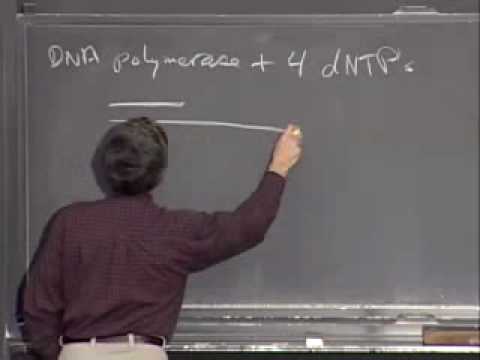 DNA polymerase + 4 dNTPs